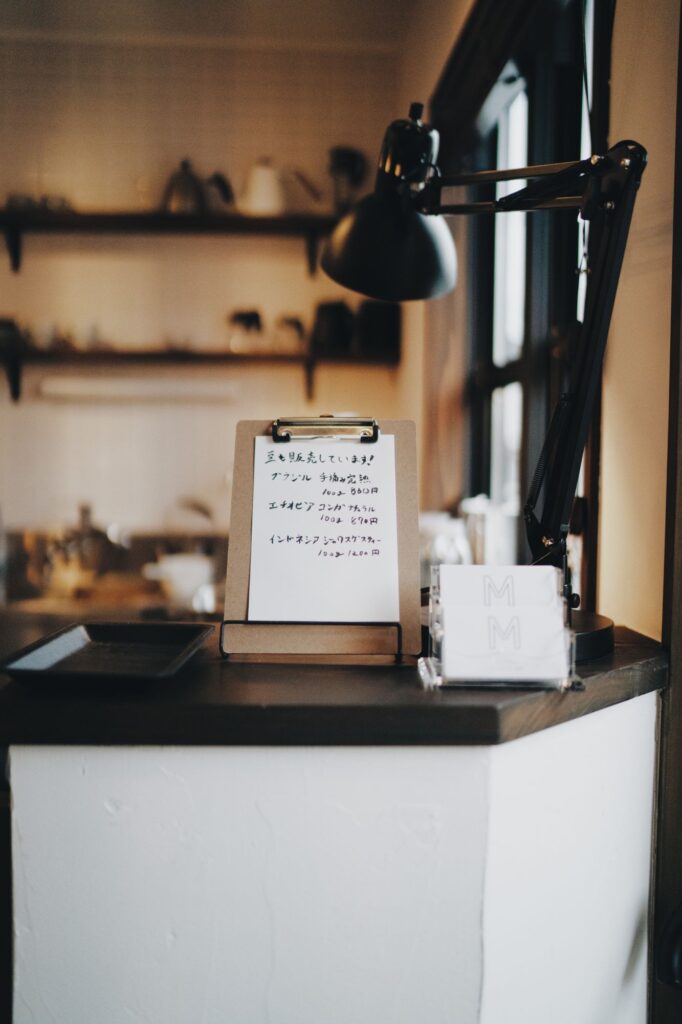 豆も販売しています!
ブラジル 手摘み完熟
100g 860円
エチオピア コンガ ナチュラル
100g 870円
インドネシア
100g 1200円
M
M